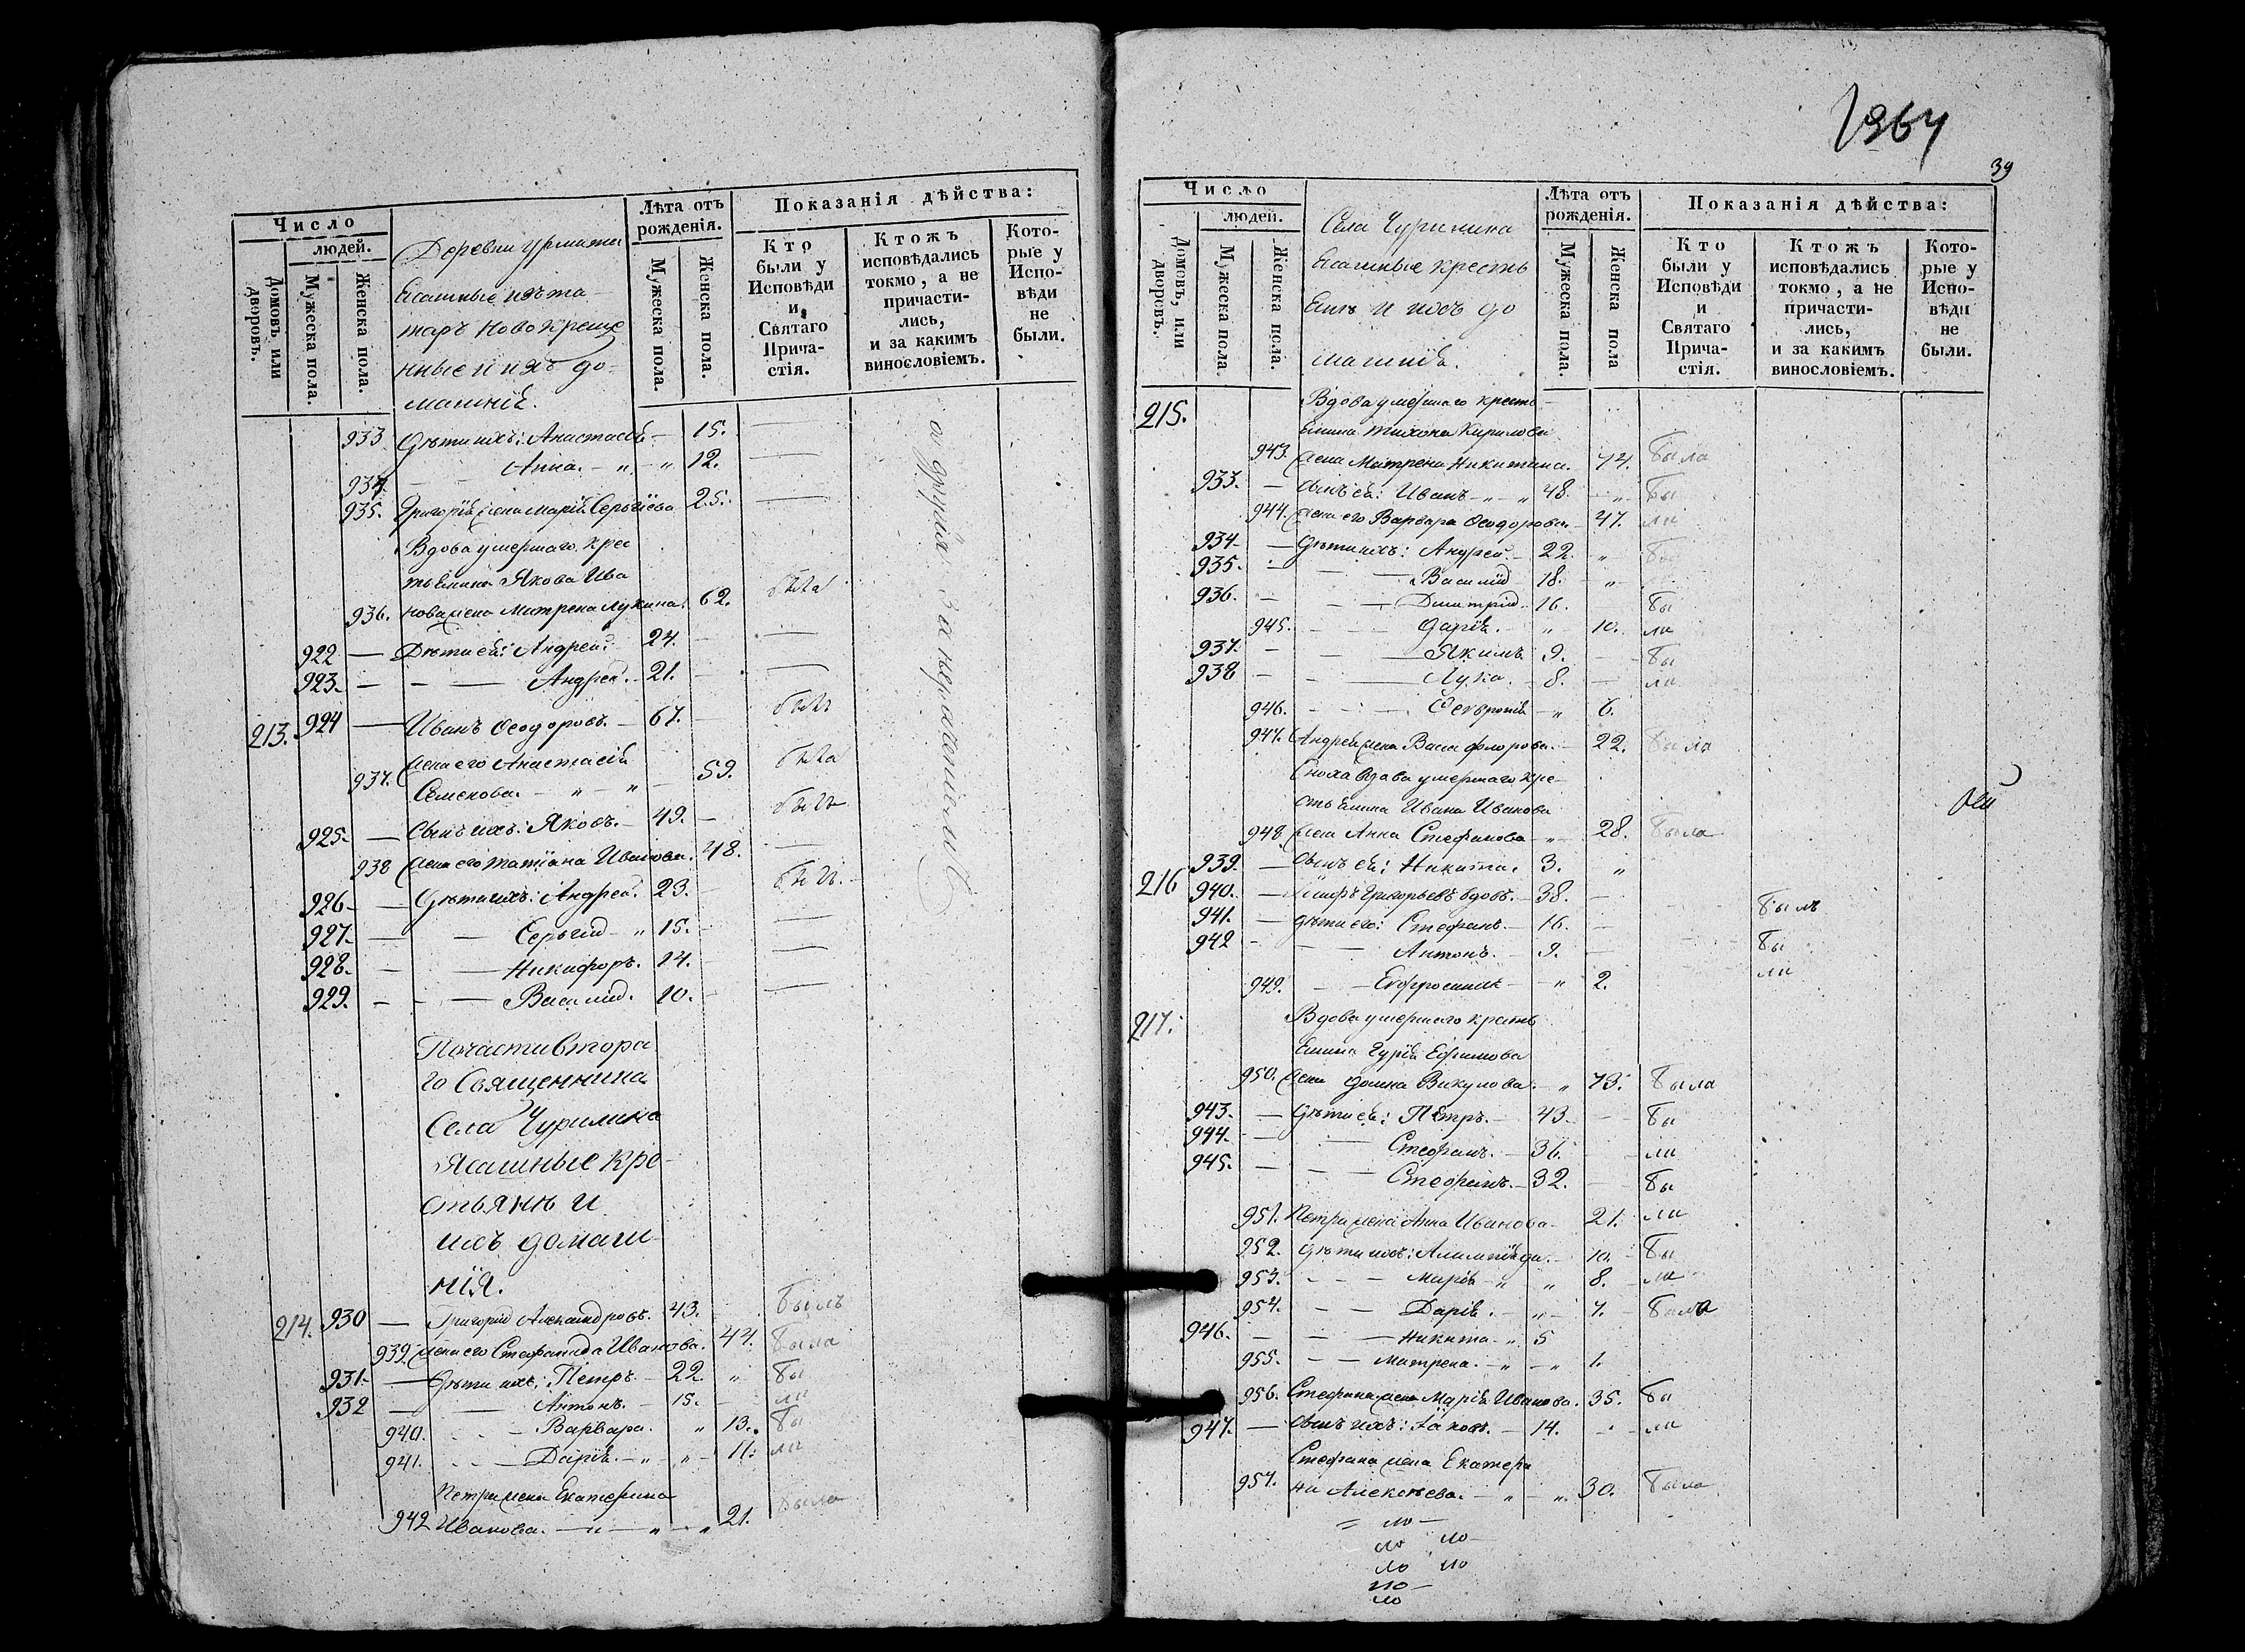 Число
людей.
Домовъ, или дворовъ.
Мужеска пола.
Женска пола.
Деревни Урмата
Ясашные изъ та
таръ новокреще
нные и ихъ до=
машнія.
Лѣта отъ рожденія.
Мужеска пола.
Женска пола.
Показанія дѣйства:
Кто были у Исповѣди и Святаго Прича-стія.
Ктожъ исповѣдались токмо, а не причасти-лись, и за какимъ винословіемъ.
Кото-рые у Испо-вѣди не были.
933 Дѣти ихъ: Анастасія — 15.
934. Анна. 12.
935. Григорія жена Марія Сергіева 25.
Вдова умершаго крес
тьянина Якова Ива
936. нова жена Матрена Лукина. 62. была
922 — Дѣти ея: Андрей. 24.
923. — Андрей. 21.
а другія за нерадѣніемъ
213. 924 — Иванъ Ѳеодоровъ. 67. былъ
жена его Анастасія
937. Семенова. 59. была
925. — Сынъ ихъ: Яковъ. 49. былъ
938 жена его Татіана Иванова. 48.
926 — Дѣти ихъ: Андрей. 23. былъ.
927. — Сергій 15.
928. — Никифоръ. 14.
929. — Василий. 10.
Почасти втора
го Священника
Села Чурилина
Ясашные кре-
стьянѣ и
ихъ домаш
нія.
214. 930 — Григорій Александровъ. 43. былъ
939. жена его Стефанида Иванова. 44. была
931. — Дѣти ихъ: Петръ 22. бы
932 — Антонъ. 15. ли
940. Варвара. 13. бы
941. Дарія. 11. ли
Петра жена Екатерина
942 Иванова. 21. была
1964
39
Число
людей.
Домовъ, или дворовъ.
Мужеска пола.
Женска пола.
Села Чурилина
Ясашные кресть
янѣ и ихъ до
машнія.
Лѣта отъ рожденія.
Мужеска пола.
Женска пола
Показанія дѣйства:
Кто были у Исповѣди и Святаго Прича-стія.
Ктожъ исповѣдались токмо, а не причасти-лись, и за какимъ винословіемъ.
Кото-рые у Испо-вѣди не были.
215. Вдова умершаго кресть
янина Тихона Кирилова
943. жена Матрена Никитина. 74. была
933. — Сынъ ея: Иванъ 48. бы
944. жена его Варвара Ѳеодорова. 47. ли
934 — Дѣти ихъ: Андрей. 22. бы
935. Василий 18.
936. Димитрий. 16. бы
945. Дарія. 10. ли
937. Якимъ 9. бы
938 Лука. 8. ли
946. Ѳевронія 6.
947. Андрея жена Васса Флорова. 22. была
Сноха вдова умершаго кре-
стьянина Ивана Иванова
948. жена Анна Стефанова 28. была
939. — Сынъ ея: Никита. 3.
216 940. — Григорьевъ вдовъ. 38. былъ
941. — Дѣти его: Стефанъ. 16. бы
942 Антонъ. 9. ли
949. Евфросинія 2.
217. Вдова умершаго кресть
янина Гурія Ефимова
950. жена Домна Викулова. 73. была
943. — Дѣти ея: Петръ. 43. бы
944. Стефанъ. 36. ли
945. Стефанъ. 32. бы
951. Петра жена Анна Иванова 21. ли
952. Дѣти ихъ: 10. бы
953. Марія 8. ли
954. Дарія. 7. была
946. Никита. 5
955. Матрена. 1.
956. Стефана жена Марія Иванова. 35. бы
947. — Сынъ ихъ: Іаковъ. 14. ли
Стефана жена Екатери
957. на Алексѣева. 30. была